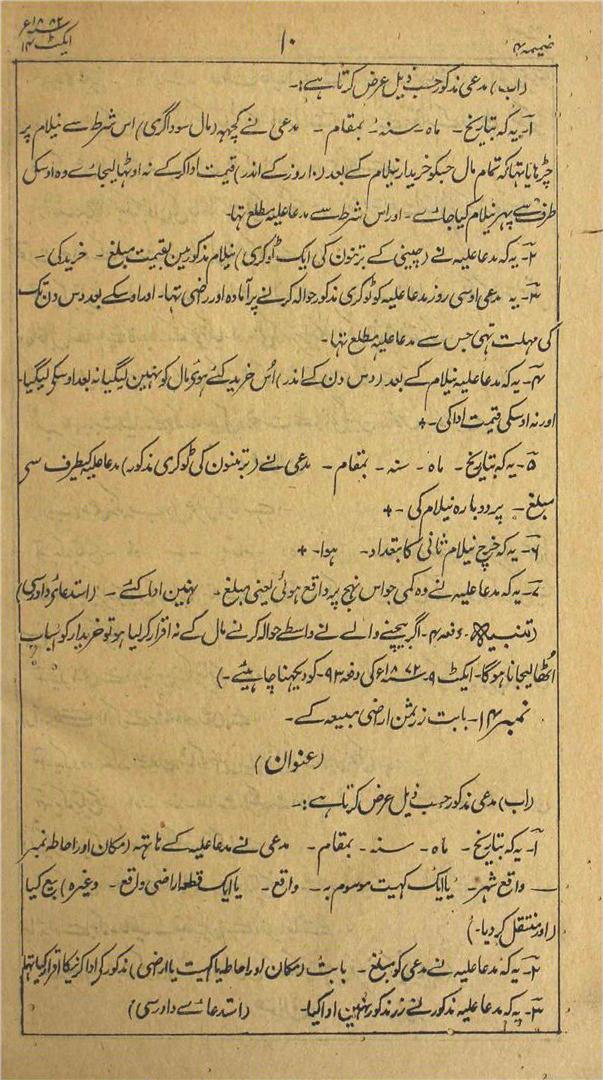 ضمیمہ ۴ ۱۰ ۱۸۸۲ء ایکٹ ۱۴
(اب) مدعی مذکور حسب ذیل عرض کرتا ہے:-
۱- یہ کہ بتاریخ - ماہ - سنہ - بمقام - مدعی نے کچہہ (مال سوداگری) اس شرط سے نیلام پر
چڑہایا تہا کہ تمام مال جسکو خریدار نیلام کے بعد (۱۰ روز کے اندر) قیمت ادا کرکے نہ اوٹہا لیجاے وہ اوسکی
طرف سے پہر نیلام کیا جاے - اور اس شرط سے مدعا علیہ مطلع تہا -
۲- یہ کہ مدعا علیہ نے (چینی کے برتنون کی ایک ٹوکری) نیلام مذکور مین بقیمت مبلغ - خرید کی -
۳- یہ مدعی اوسی روز مدعا علیہ کو ٹوکری مذکور حوالہ کرنے پر آمادہ اور راضی تہا - اور اوسکے بعد دس دن تک
کی مہلت تہی جس سے مدعا علیہ مطلع تہا -
۴- یہ کہ مدعا علیہ نیلام کے بعد (دس دن کے اندر) اُس خرید کئے ہوئے مال کو نہین لیگیا نہ بعد اوسکو لیگیا -
اور نہ اوسکی قیمت ادا کی - +
۵- یہ کہ بتاریخ - ماہ - سنہ - بمقام - مدعی نے (برتنون کی ٹوکری مذکور) مدعا علیہ کیطرف سے
مبلغ - پر دوبارہ نیلام کی - +
۶- یہ کہ خرچ نیلام ثانی کا بتعداد - ہوا - +
۷- یہ کہ مدعا علیہ نے وہ کمی جو اس نہج پر واقع ہوئی یعنی مبلغ - نہین ادا کئے - (استدعاے دادرسی)
(تنبیہ - دفعہ ۴ - اگر بیچنے والے نے واسطے حوالہ کرنے مال کے نہ اقرار کر لیا ہو تو خریدار کو اسباب
اُٹھا لیجانا ہوگا - ایکٹ ۹ - سنہ ۱۸۷۲ء کی دفعہ ۹۳ - کو دیکھنا چاہیئے -)
نمبر ۱۴ - بابت زر ثمن اراضی مبیعہ کے -
(عنوان)
(اب) مدعی مذکور حسب ذیل عرض کرتا ہے:-
۱- یہ کہ بتاریخ - ماہ - سنہ - بمقام - مدعی نے مدعا علیہ کے ہاتہہ (مکان اور احاطہ نمبر
— واقع شہر - یا ایک کہیت موسوم بہ - واقع - یا ایک قطعہ اراضی واقع - وغیرہ) بیع کیا
(اور منتقل کر دیا -)
۲- یہ کہ مدعا علیہ نے مدعی کو مبلغ - بابت (مکان اور احاطہ یا کہیت یا اراضی) مذکور کی ادا کرنیکا اقرار کیا تہا
۳- یہ کہ مدعا علیہ مذکور نے زر مذکور نہین ادا کیا - (استدعاے دادرسی)